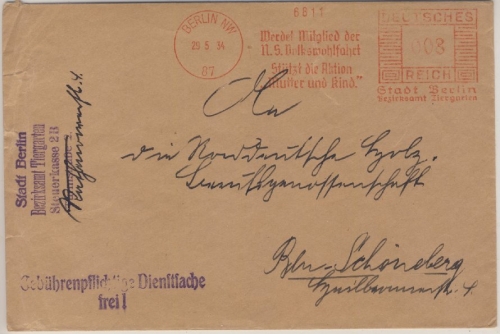 6811
BERLIN NW
29 5 34
87
Werdet Mitglied der
N.S. Volkswohlfahrt
Stützt die Aktion
"Mutter und Kind."
DEUTSCHES
008
REICH
Stadt Berlin
Bezirksamt Tiergarten
An
die Norddeutsche Holz-
Berufsgenossenschaft
Bln-Schöneberg
Stadt Berlin
Bezirksamt Tiergarten
Steuerkasse 2B
Gebührenpflichtige Dienstsache
frei!